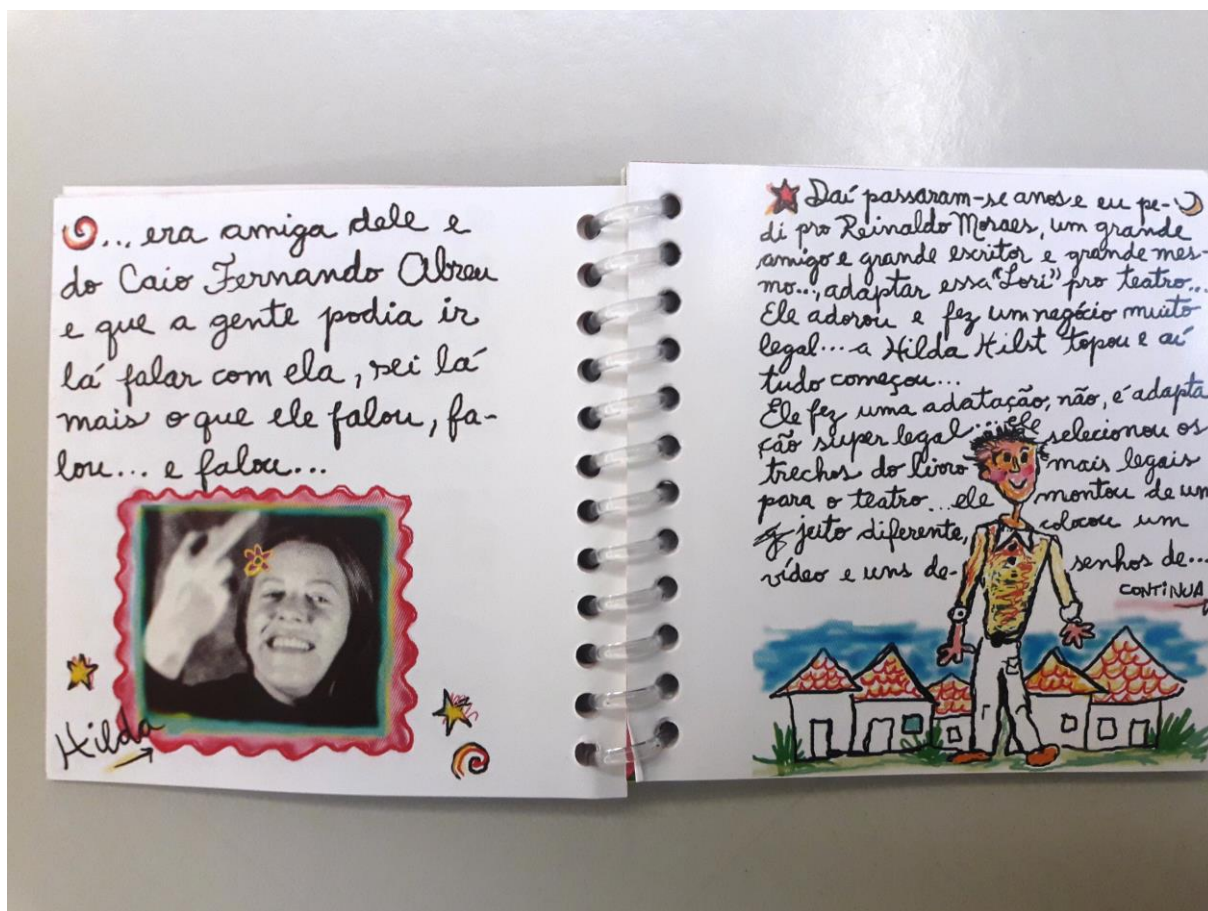 ... era amiga dele e
do Caio Fernando Abreu
e que a gente podia ir
lá falar com ela, sei lá
mais o que ele falou, fa-
lou... e falou...
Hilda
Daí passaram-se anos e eu pe-
di pro Reinaldo Moraes, um grande
amigo e grande escritor e grande mes-
mo..., adaptar essa "Lori" pro teatro...
Ele adorou e fez um negócio muito
legal... a Hilda Hilst topou e aí
tudo começou...
Ele fez uma adatação, não, é adapta
ção super legal... ele selecionou os
trechos do livro mais legais
para o teatro... ele montou de um
jeito diferente, colocou um
vídeo e uns de- senhos de...
CONTINUA